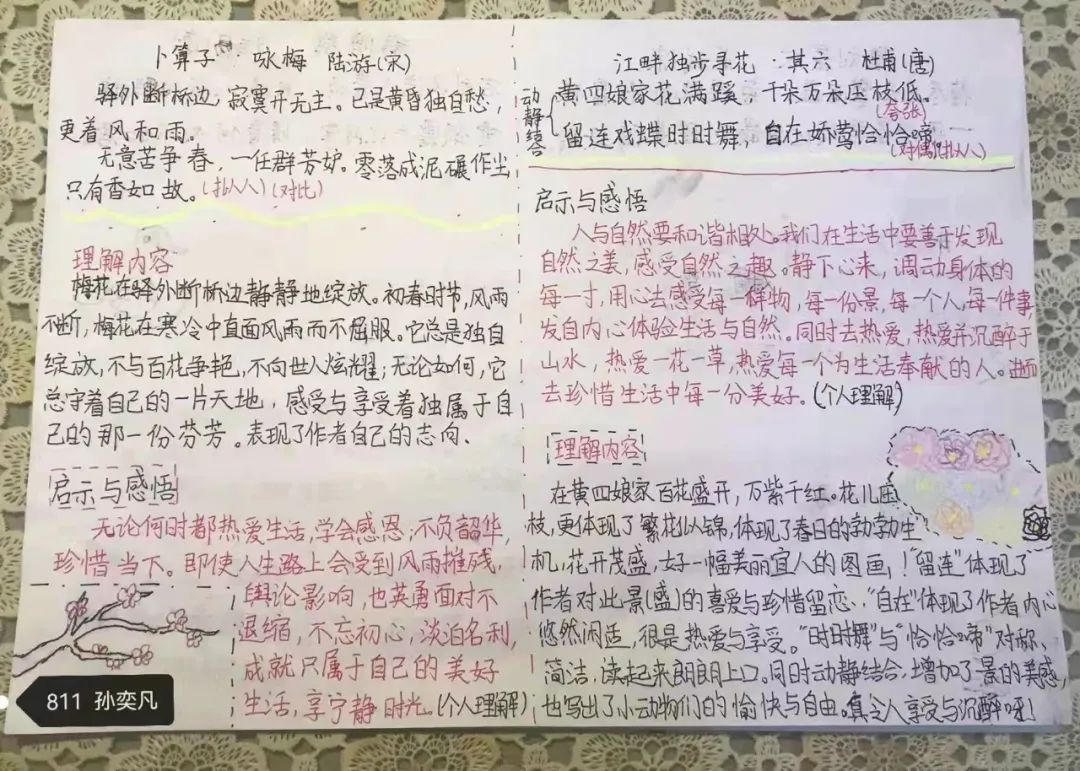 卜算子 咏梅 陆游(宋)
驿外断桥边,寂寞开无主。已是黄昏独自愁,
更着风和雨。
无意苦争春,一任群芳妒。零落成泥碾作尘,
只有香如故。(拟人)(对比)
理解内容
梅花在驿外断桥边静静地绽放。初春时节,风雨
不断,梅花在寒冷中直面风雨而不屈服。它总是独自
绽放,不与百花争艳,不向世人炫耀;无论如何,它
总守着自己的一片天地,感受与享受着独属于自
己的那一份芬芳。表现了作者自己的志向、
启示与感悟
无论何时都热爱生活,学会感恩;不负韶华,
珍惜当下。即使人生路上会受到风雨摧残,
舆论影响,也英勇面对不
退缩,不忘初心,淡泊名利,
成就只属于自己的美好
生活,享宁静时光。(个人理解)
811 孙奕凡
江畔独步寻花·其六 杜甫(唐)
动静结合
黄四娘家花满蹊,千朵万朵压枝低。
(夸张)
留连戏蝶时时舞,自在娇莺恰恰啼。
(对偶)(拟人)
启示与感悟
人与自然要和谐相处。我们在生活中要善于发现
自然之美,感受自然之趣。静下心来,调动身体的
每一寸,用心去感受每一样物,每一份景,每一个人,每一件事,
发自内心体验生活与自然。同时去热爱,热爱并沉醉于
山水,热爱一花一草,热爱每一个为生活奉献的人。进而
去珍惜生活中每一分美好。(个人理解)
理解内容
在黄四娘家百花盛开,万紫千红。花儿压
枝,更体现了繁花似锦,体现了春日的勃勃生
机,花开茂盛,好一幅美丽宜人的图画,!“留连”体现了
作者对此景(盛)的喜爱与珍惜留恋、“自在”体现了作者内心
悠然闲适,很是热爱与享受。“时时舞”与“恰恰啼”对称、
简洁,读起来朗朗上口。同时动静结合,增加了景的美感,
也写出了小动物们的愉快与自由。真令人享受与沉醉呀!